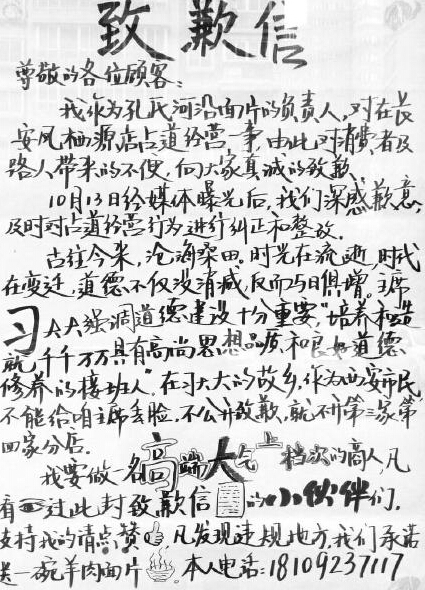 致歉信
尊敬的各位顾客:
我作为孔氏河沿面片的负责人,对在长
安凤栖源店占道经营一事,由此对消费者及
路人带来的不便,向大家真诚的致歉
10月13日经媒体曝光后,我们深感歉意,
及时对占道经营行为进行纠正和整改.
古往今来,沧海桑田.时光在流逝,时代
在变迁,道德不仅没消减,反而与日俱增.主席
习大大强调道德建设十分重要,"培养和造
就千千万万具有高尚思想品质和良好道德
修养的接班人".在习大大的故乡,作为西安市民,
不能给咱主席丢脸,不公开致歉,就不开第三家、第
四家分店.
我要做一名高端大气上档次的商人,凡
看过此封致歉信的小伙伴们,
支持我的请点赞,凡发现违规地方,我们承诺
送一碗羊肉面片.本人电话:18109237117